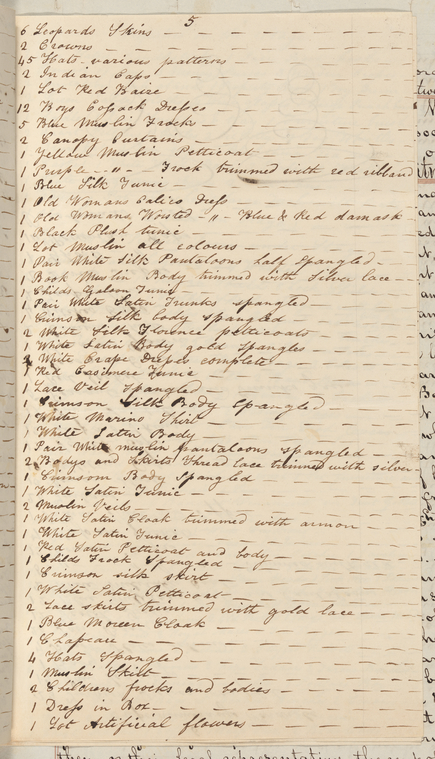 5
6 Leopards Skins
2 Crowns
45 Hats various patterns
2 Indian Caps
1 Lot Red Baize
12 Boys Cossack Dresses
5 Blue Muslin Frocks
2 Canopy Curtains
1 Yellow Muslin Petticoat
1 Purple " Frock trimmed with red ribband
1 Blue Silk Tunic
1 Old Womans Calico Dress
1 Old Womans Worsted " Blue & Red damask
1 Black Plush tunic
1 Lot Muslin all colours
1 Pair White Silk Pantaloons half spangled
1 Book Muslin Body trimmed with silver lace
1 Childs Tunic
1 Pair White Satin Trunks spangled
1 Crimson Silk body spangled
2 White Silk Florence petticoats
1 White Satin Body gold spangles
White Crape Dresses complete
1 Red Casimere Tunic
1 Lace Veil spangled
1 Crimson Silk Body Spangled
1 White Marino Shirt
1 White Satin Body
1 Pair White muslin pantaloons spangled
2 Bodys and Skirts Thread lace trimmed with silver
1 Crimsom Body Spangled
1 White Satin Tunic
2 Muslin Veils
1 White Satin Cloak trimmed with armon
1 White Satin Tunic
1 Red Satin Petticoat and body
1 Childs Frock Spangled
1 Crimson silk skirt
1 White Satin Petticoat
2 Lace skirts trimmed with gold lace
1 Blue Moreen Cloak
1 Chapeare
4 Hats Spangled
1 Muslin Skirt
2 Childrens frocks and bodies
1 Dress in Box
1 Lot Artificial flowers